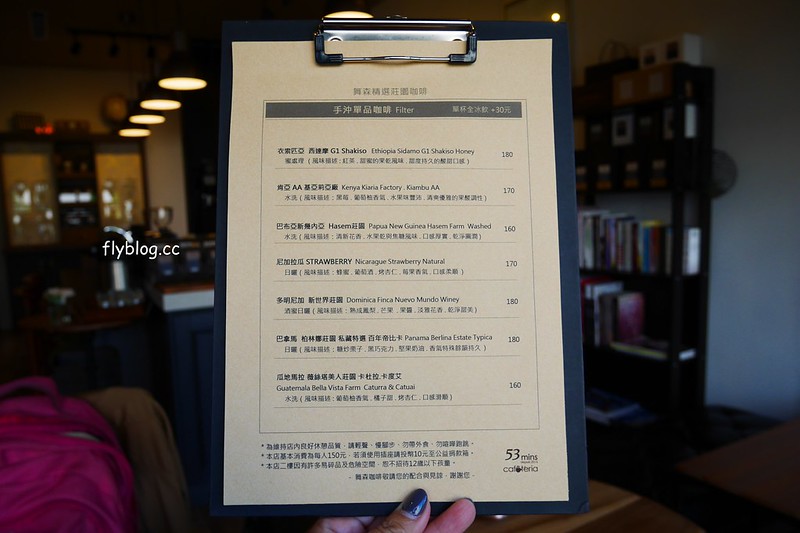 舞森精選莊園咖啡
手沖單品咖啡 Filter 單杯全冰飲 +30元
衣索匹亞 西達摩 G1 Shakiso Ethiopia Sidamo G1 Shakiso Honey 180
蜜處理 ( 風味描述 : 紅茶 . 甜蜜的果乾風味 . 甜度持久的酸甜口感 )
肯亞 AA 基亞莉亞廠 Kenya Kiaria Factory . Kiambu AA 170
水洗 ( 風味描述 : 黑莓 . 葡萄柚香氣 . 水果味豐沛 . 清爽優雅的果酸調性 )
巴布亞新幾內亞 Hasem莊園 Papua New Guinea Hasem Farm Washed 160
水洗 ( 風味描述 : 清新花香 . 水果乾與焦糖風味 . 口感厚實 . 乾淨圓潤 )
尼加拉瓜 STRAWBERRY Nicarague Strawberry Natural 170
日曬 ( 風味描述 : 蜂蜜 . 葡萄酒 . 烤杏仁 . 莓果香氣 . 口感柔順 )
多明尼加 新世界莊園 Dominica Finca Nuevo Mundo Winey 180
酒蜜日曬 ( 風味描述 : 熟成鳳梨 . 芒果 . 果醬 . 淡雅花香 . 乾淨甜美 )
巴拿馬 柏林娜莊園 私藏特選 百年帝比卡 Panama Berlina Estate Typica 180
日曬 ( 風味描述 : 糖炒栗子 . 黑巧克力 . 堅果奶油 . 香氣特殊餘韻持久 )
瓜地馬拉 薇絲塔美人莊園 卡杜拉.卡度艾
Guatemala Bella Vista Farm Caturra & Catuai 160
水洗 ( 風味描述 : 葡萄柚香氣 . 橘子甜 . 烤杏仁 . 口感滑順 )
* 為維持店內良好休憩品質，請輕聲、慢腳步、勿帶外食、勿喧嘩跑跳。
* 本店基本消費為每人150元，若須使用插座請投幣10元至公益捐款箱。
* 本店二樓因有許多易碎品及危險空間，恕不招待12歲以下孩童。
- 舞森咖啡敬請您的配合與見諒，謝謝您 -
53 mins
cafeteria
flyblog.cc